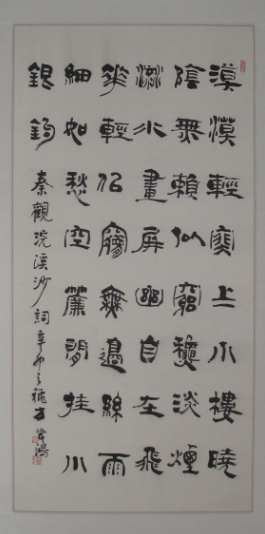 漠漠輕寒上小樓曉
陰無賴似窮龝淡煙
流水畫屏幽自在飛
花輕佀夢無邊絲雨
細如愁簾閒挂小
銀鉤 秦觀浣溪沙詞辛卯之秋